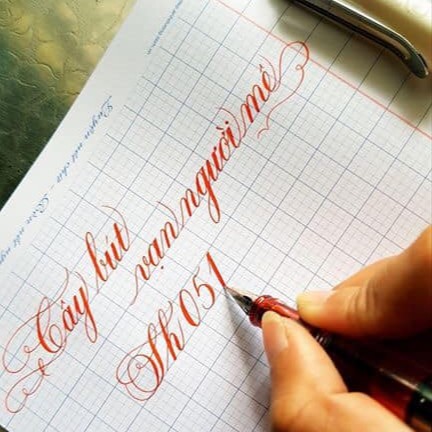 Cây bút
vạn người mê
Sh 051
Luyện nét chữ - Rèn nết người